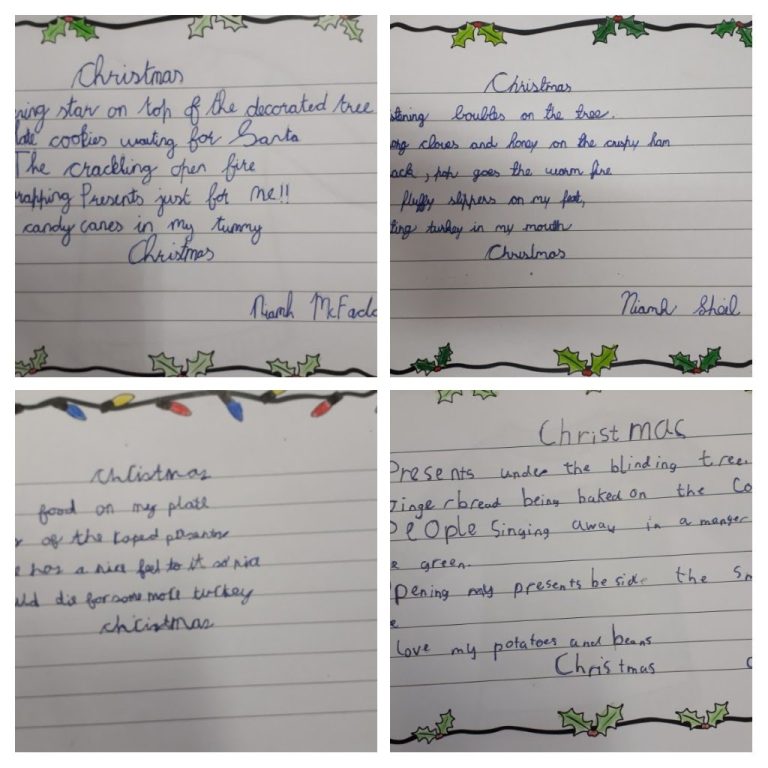 Christmas
ning star on top of the decorated tree
late cookies waiting for Santa
The crackling open fire
rapping Presents just for me!!
candy canes in my tummy
Christmas
Niamh McFadd
Christmas
stening boubles on the tree.
ong cloves and honey on the crispy ham
ack, pop goes the warm fire
fluffy slippers on my feet,
ting turkey in my mouth
Christmas
Niamh Sheil
christmas
food on my plate
of the taped presents
has a nice feel to it so nice
uld die for some more turkey
christmas
Christmas
Presents under the blinding tree.
Gingerbread being baked on the Co
People Singing away in a manger
e green.
pening my presents beside the Sm
e
love my potatoes and beans
Christmas